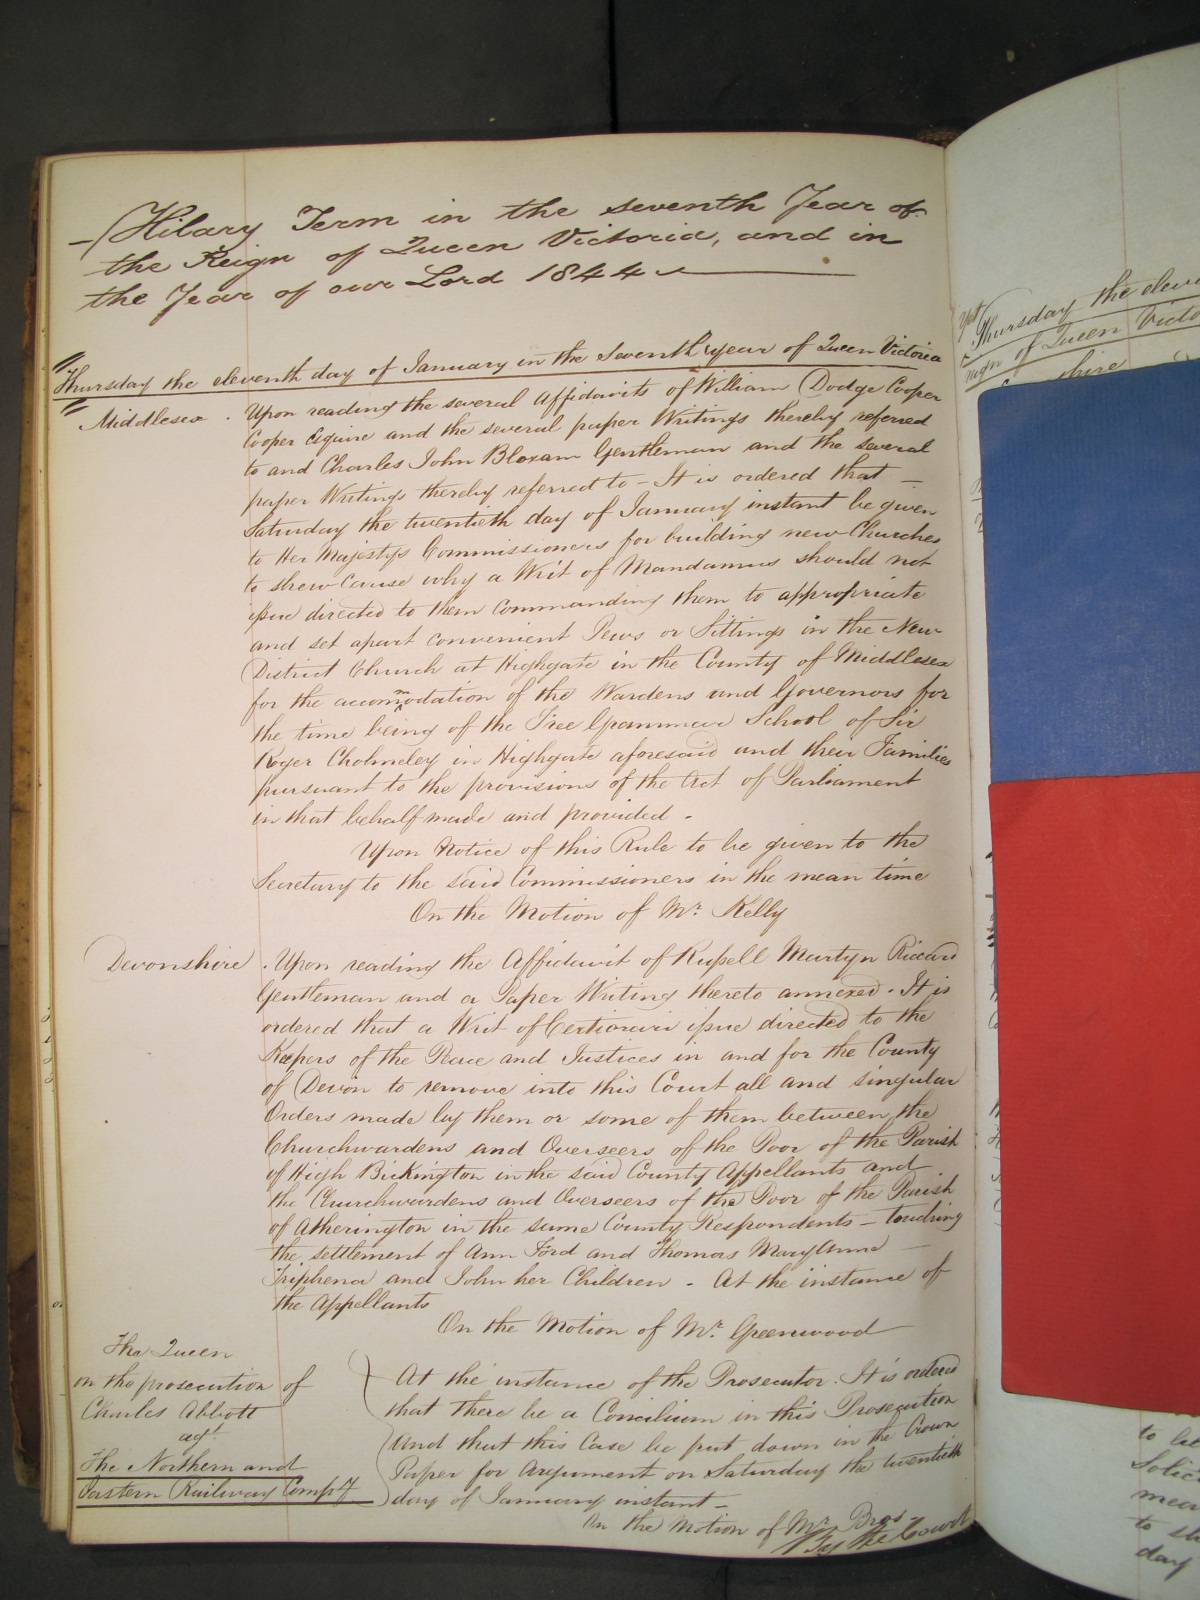 Hilary Term in the seventh Year of
the Reign of Queen Victoria, and in
the Year of our Lord 1844
Thursday the eleventh day of January in the Seventh year of Queen Victoria
Middlesex . Upon reading the several Affidavits of William Dodge Cooper
Cooper Esquire and the several paper Writings thereby referred
to and Charles John Bloxam Gentleman and the several
paper Writings thereby referred to - It is ordered that -
Saturday the twentieth day of January instant be given
to Her Majestys Commissioners for building new Churches
to shew Cause why a Writ of Mandamus should not
issue directed to them Commanding them to appropriate
and set apart convenient Pews or Sittings in the New
District Church at Highgate in the County of Middlesex
for the accommodation of the Wardens and Governors for
the time being of the Free Grammar School of Sir
Roger Cholmeley in Highgate aforesaid and their Families
pursuant to the provisions of the Act of Parliament
in that behalf made and provided .
Upon Notice of this Rule to be given to the
Secretary to the said Commissioners in the mean time
On the Motion of Mr. Kelly
Devonshire . Upon reading the Affidavit of Russell Martyn Riccard
Gentleman and a Paper Writing thereto annexed . It is
ordered that a Writ of Certiorari issue directed to the
Keepers of the Peace and Justices in and for the County
of Devon to remove into this Court all and singular
Orders made by them or some of them between the
Churchwardens and Overseers of the Poor of the Parish
of High Bickington in the said County Appellants and
the Churchwardens and Overseers of the Poor of the Parish
of Atherington in the same County Respondents - touching
the settlement of Ann Ford and Thomas Mary Anne -
Triphena and John her Children - At the instance of
the Appellants
On the Motion of Mr. Greenwood
The Queen
on the prosecution of
Charles Abbott
agt.
The Northern and
Eastern Railway Compy
At the instance of the Prosecutor . It is ordered
that there be a Concilium in this Prosecution
And that this Case be put down in the Crown
Paper for Argument on Saturday the twentieth
day of January instant -
On the Motion of Mr.
By the Court
Thursday the
of Queen
to
day